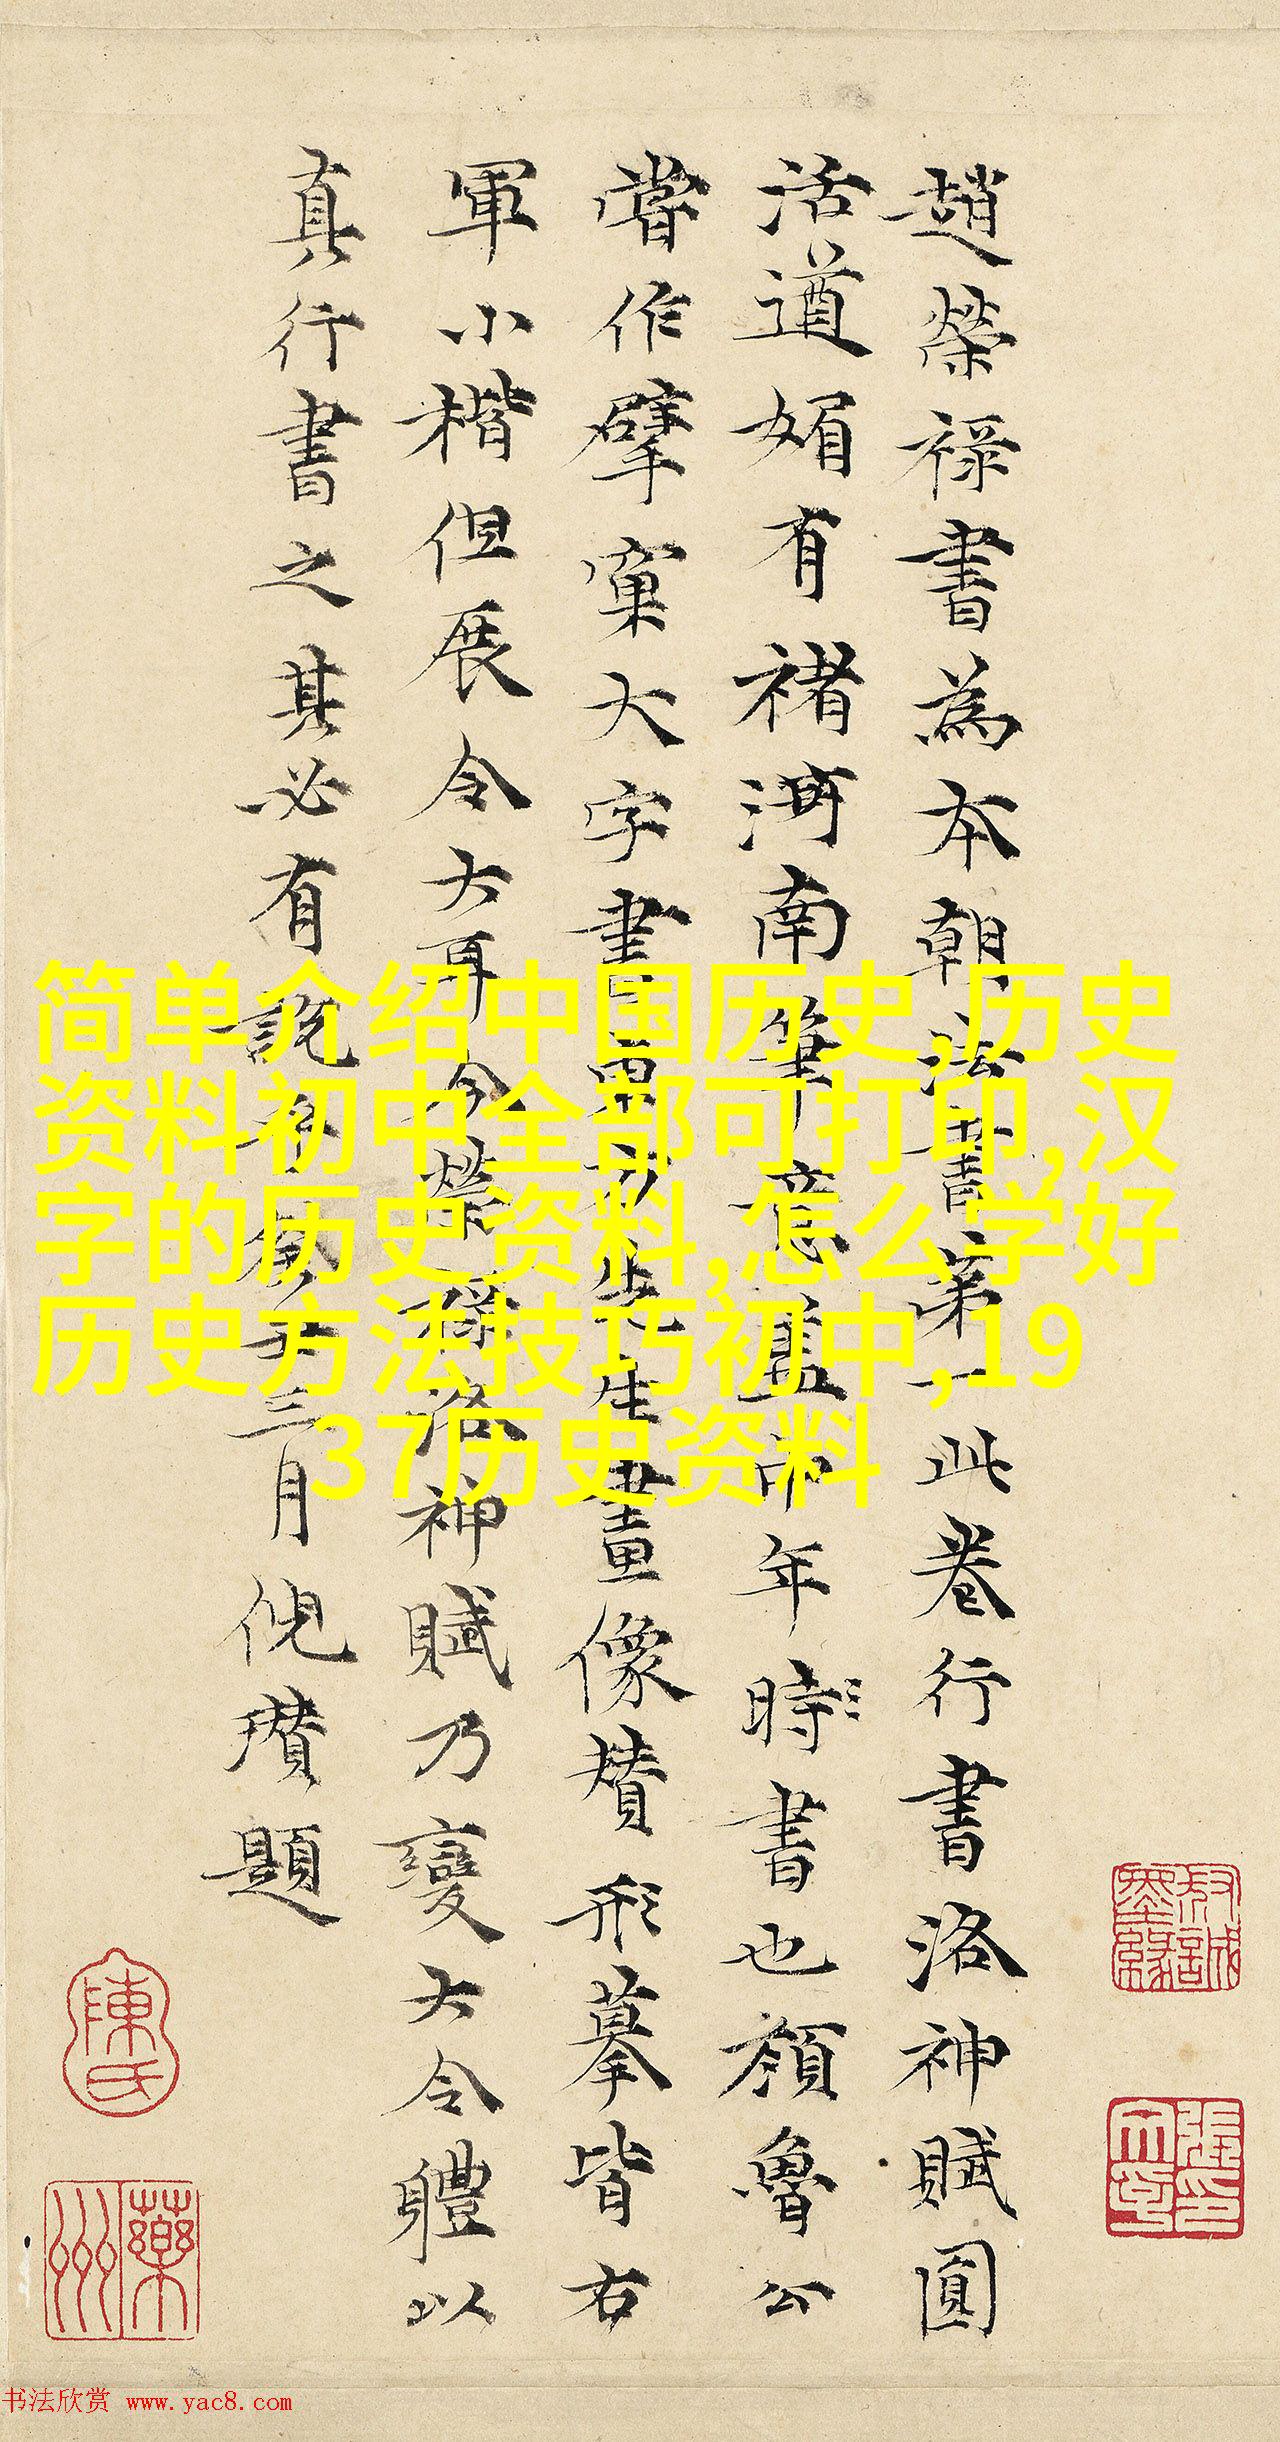 趙榮祿書為本朝法書第一此卷行書洛神賦圓
活遒媚有褚河南筆意蓋中年時書也顏魯公
嘗作擘窠大字書東方先生畫像贊形摹皆右
軍小楷但展令大耳今榮祿洛神賦乃變大令體以
真行書之其必有說
三月倪瓚題
简单介绍中国历史,历史
资料初中全部可打印,汉
字的历史资料,怎么学好
历史方法技巧初中,19
37历史资料
陳氏
书法欣赏 www.yac8.com